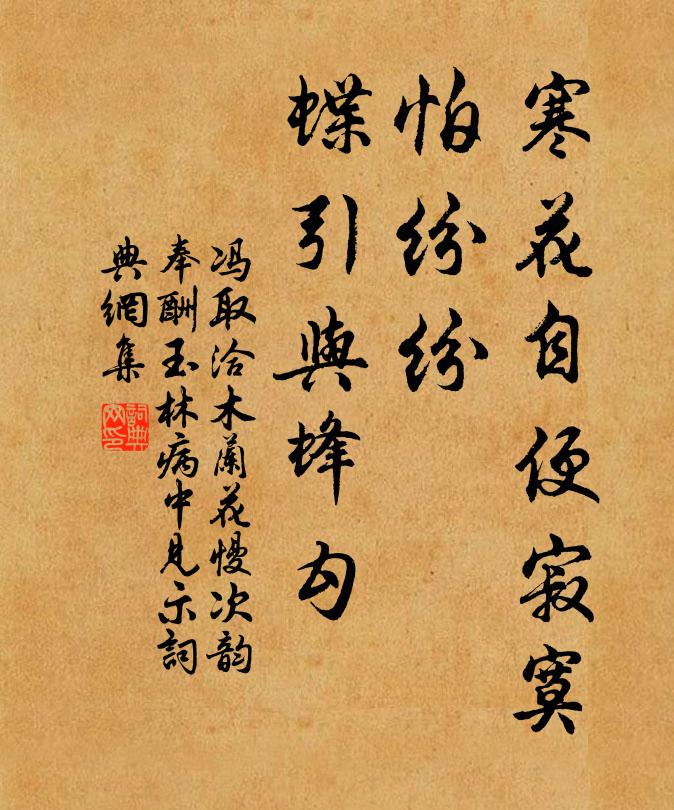 寒花自便寂寞
怕纷纷
蝶引與蜂勾
冯取洽木蘭花慢次韵
奉酬玉林病中見示詞
典網集
詞典
网印